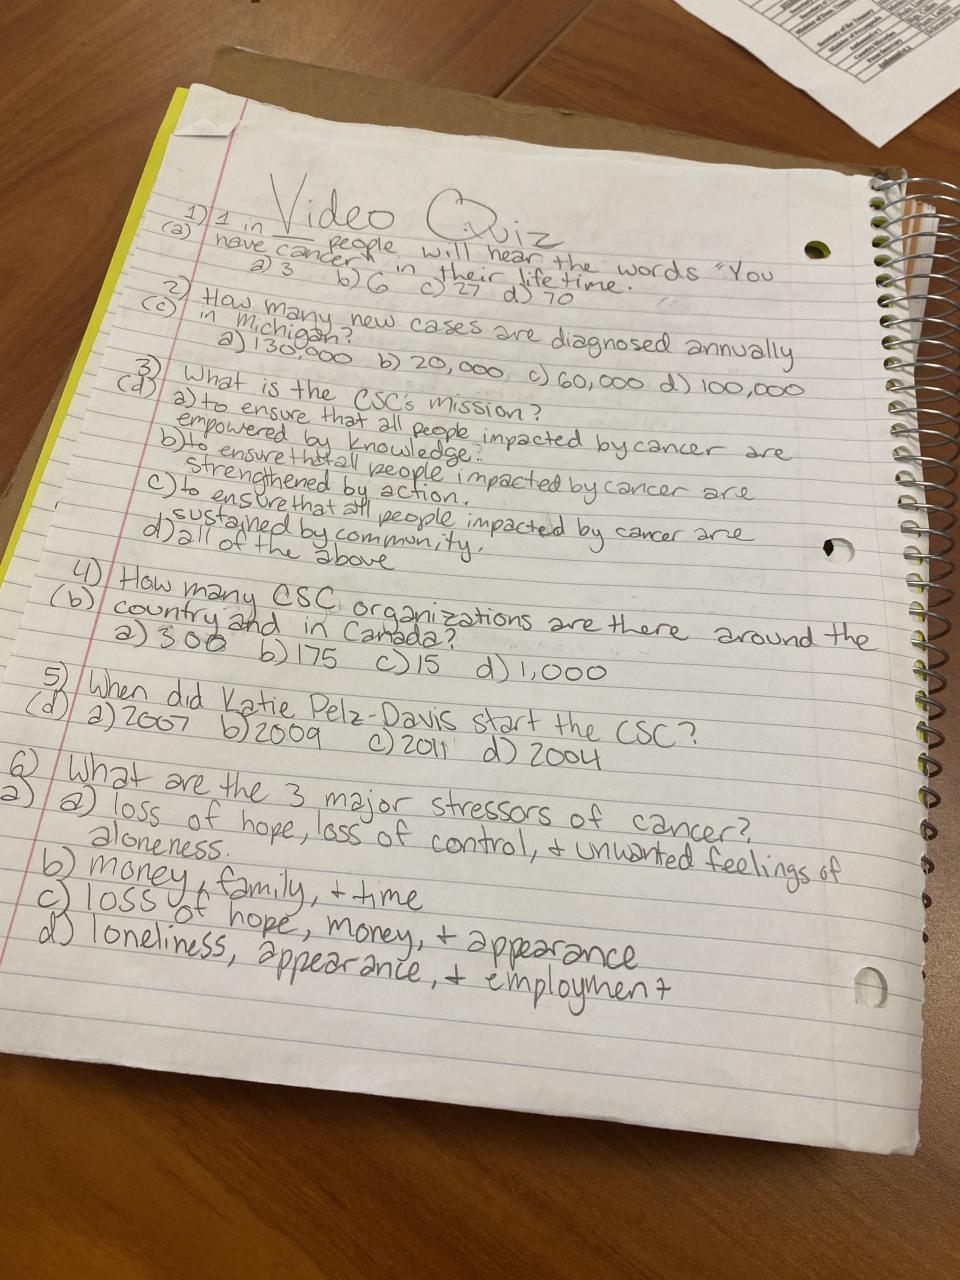 Video Quiz
1) 1 in ___ people will hear the words "You
(a) have cancer" in their lifetime.
a) 3 b) 6 c) 27 d) 70
2) How many new cases are diagnosed annually
(c) in michigan?
a) 130,000 b) 20,000 c) 60,000 d) 100,000
3) What is the CSC's mission?
(d) a) to ensure that all people impacted by cancer are
empowered by knowledge.
b) to ensure that all people impacted by cancer are
strengthened by action.
c) to ensure that all people impacted by cancer are
sustained by community.
d) all of the above
4) How many CSC organizations are there around the
(b) country and in Canada?
a) 300 b) 175 c) 15 d) 1,000
5) When did Katie Pelz-Davis start the CSC?
(d) a) 2007 b) 2009 c) 2011 d) 2004
6) What are the 3 major stressors of cancer?
a) a) loss of hope, loss of control, + unwanted feelings of
aloneness.
b) money, family, + time
c) loss of hope, money, + appearance
d) loneliness, appearance, + employment